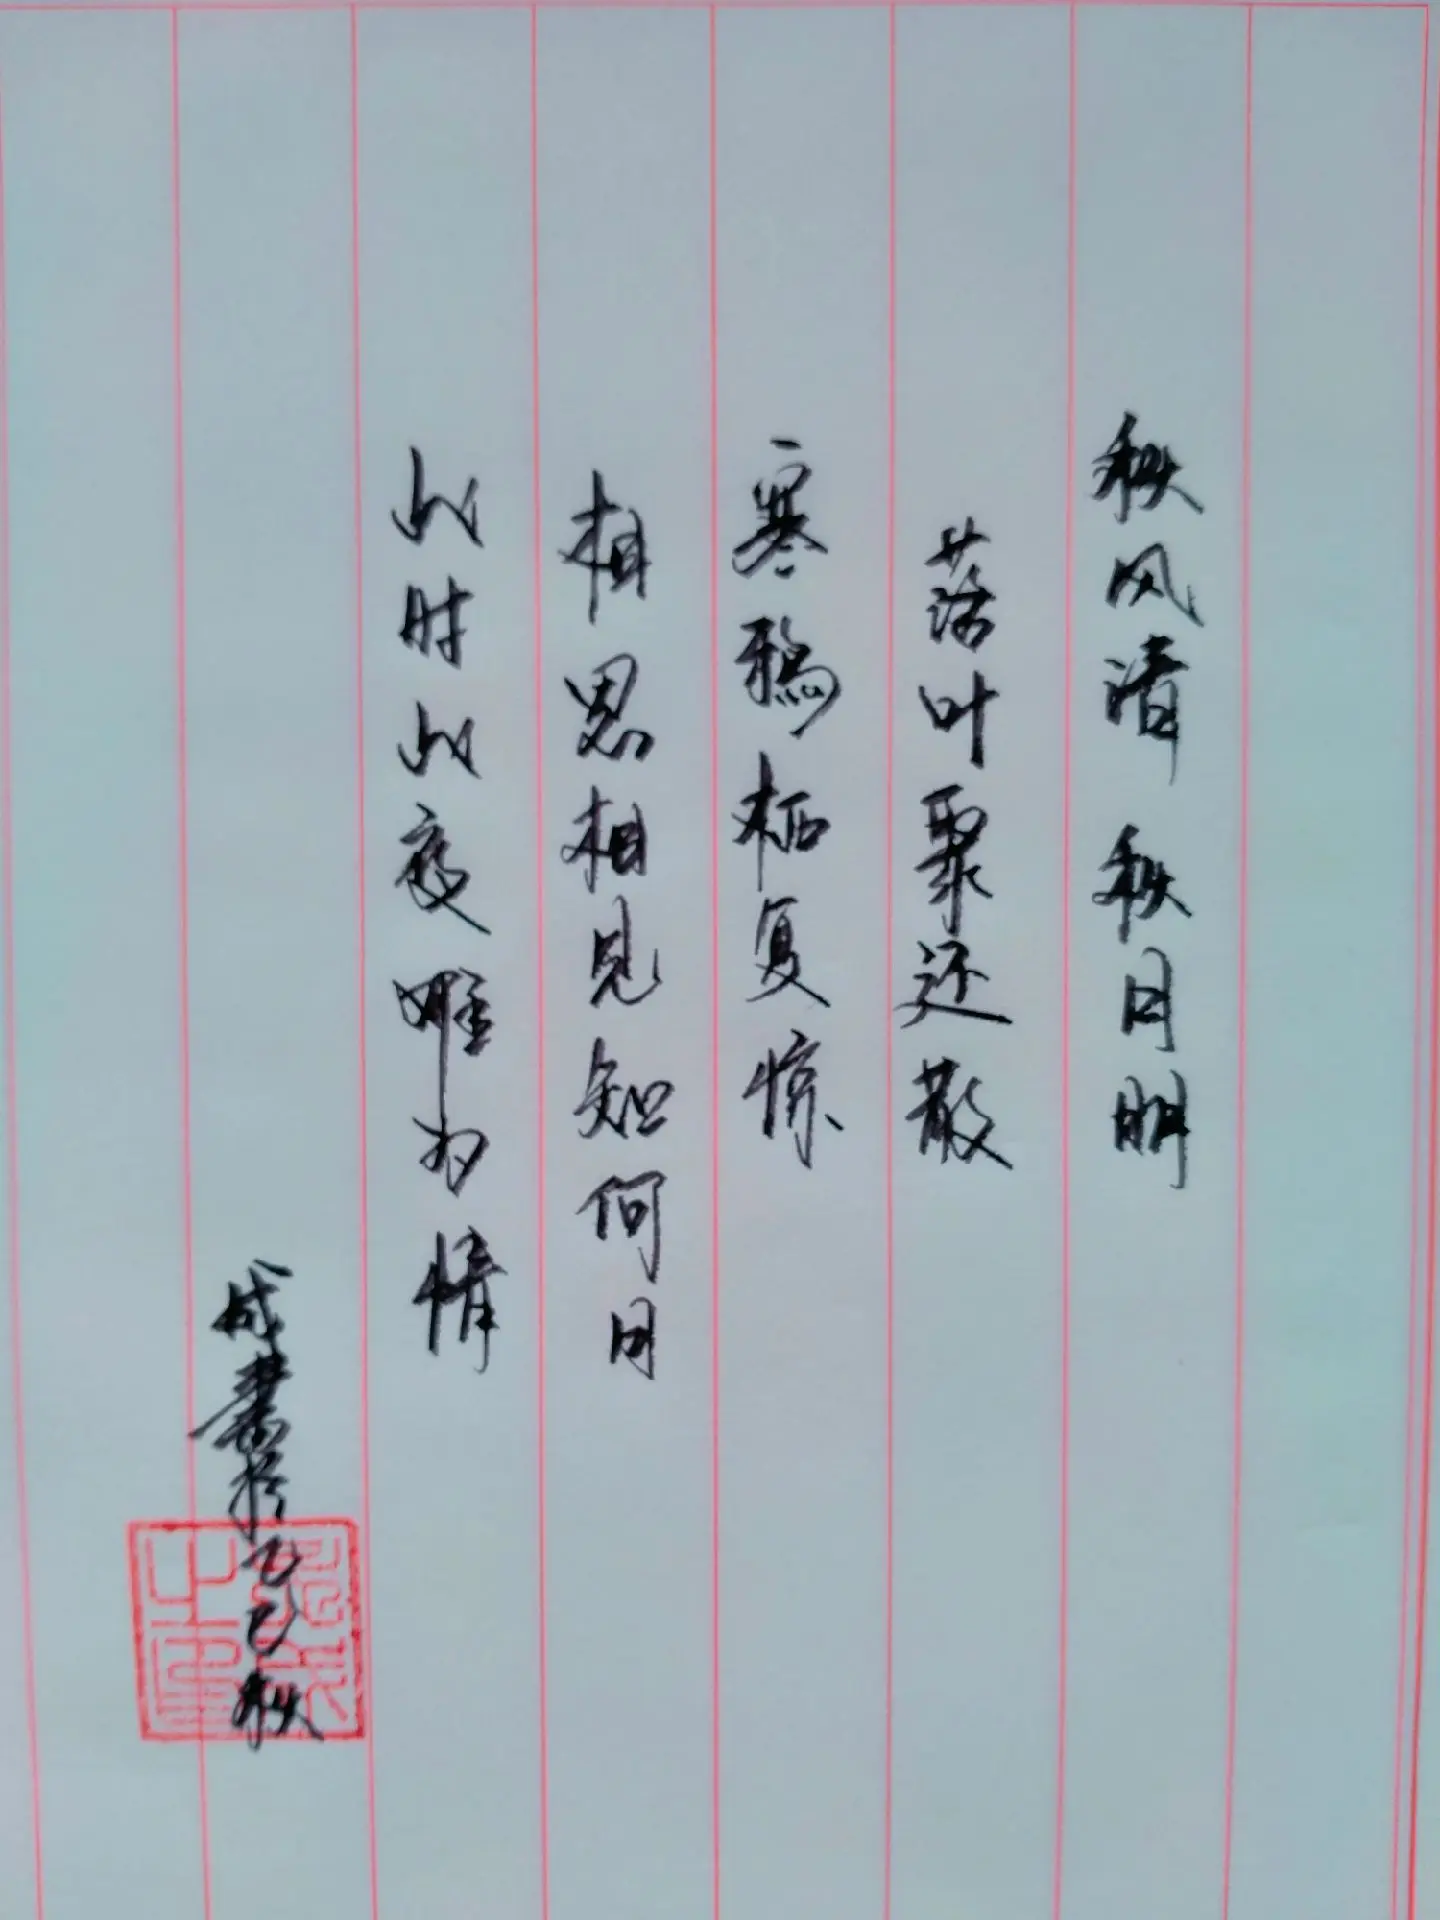 秋风清 秋月明
落叶聚还散
寒鸦栖复惊
相思相见知何日
此时此夜难为情
成书于乙巳秋